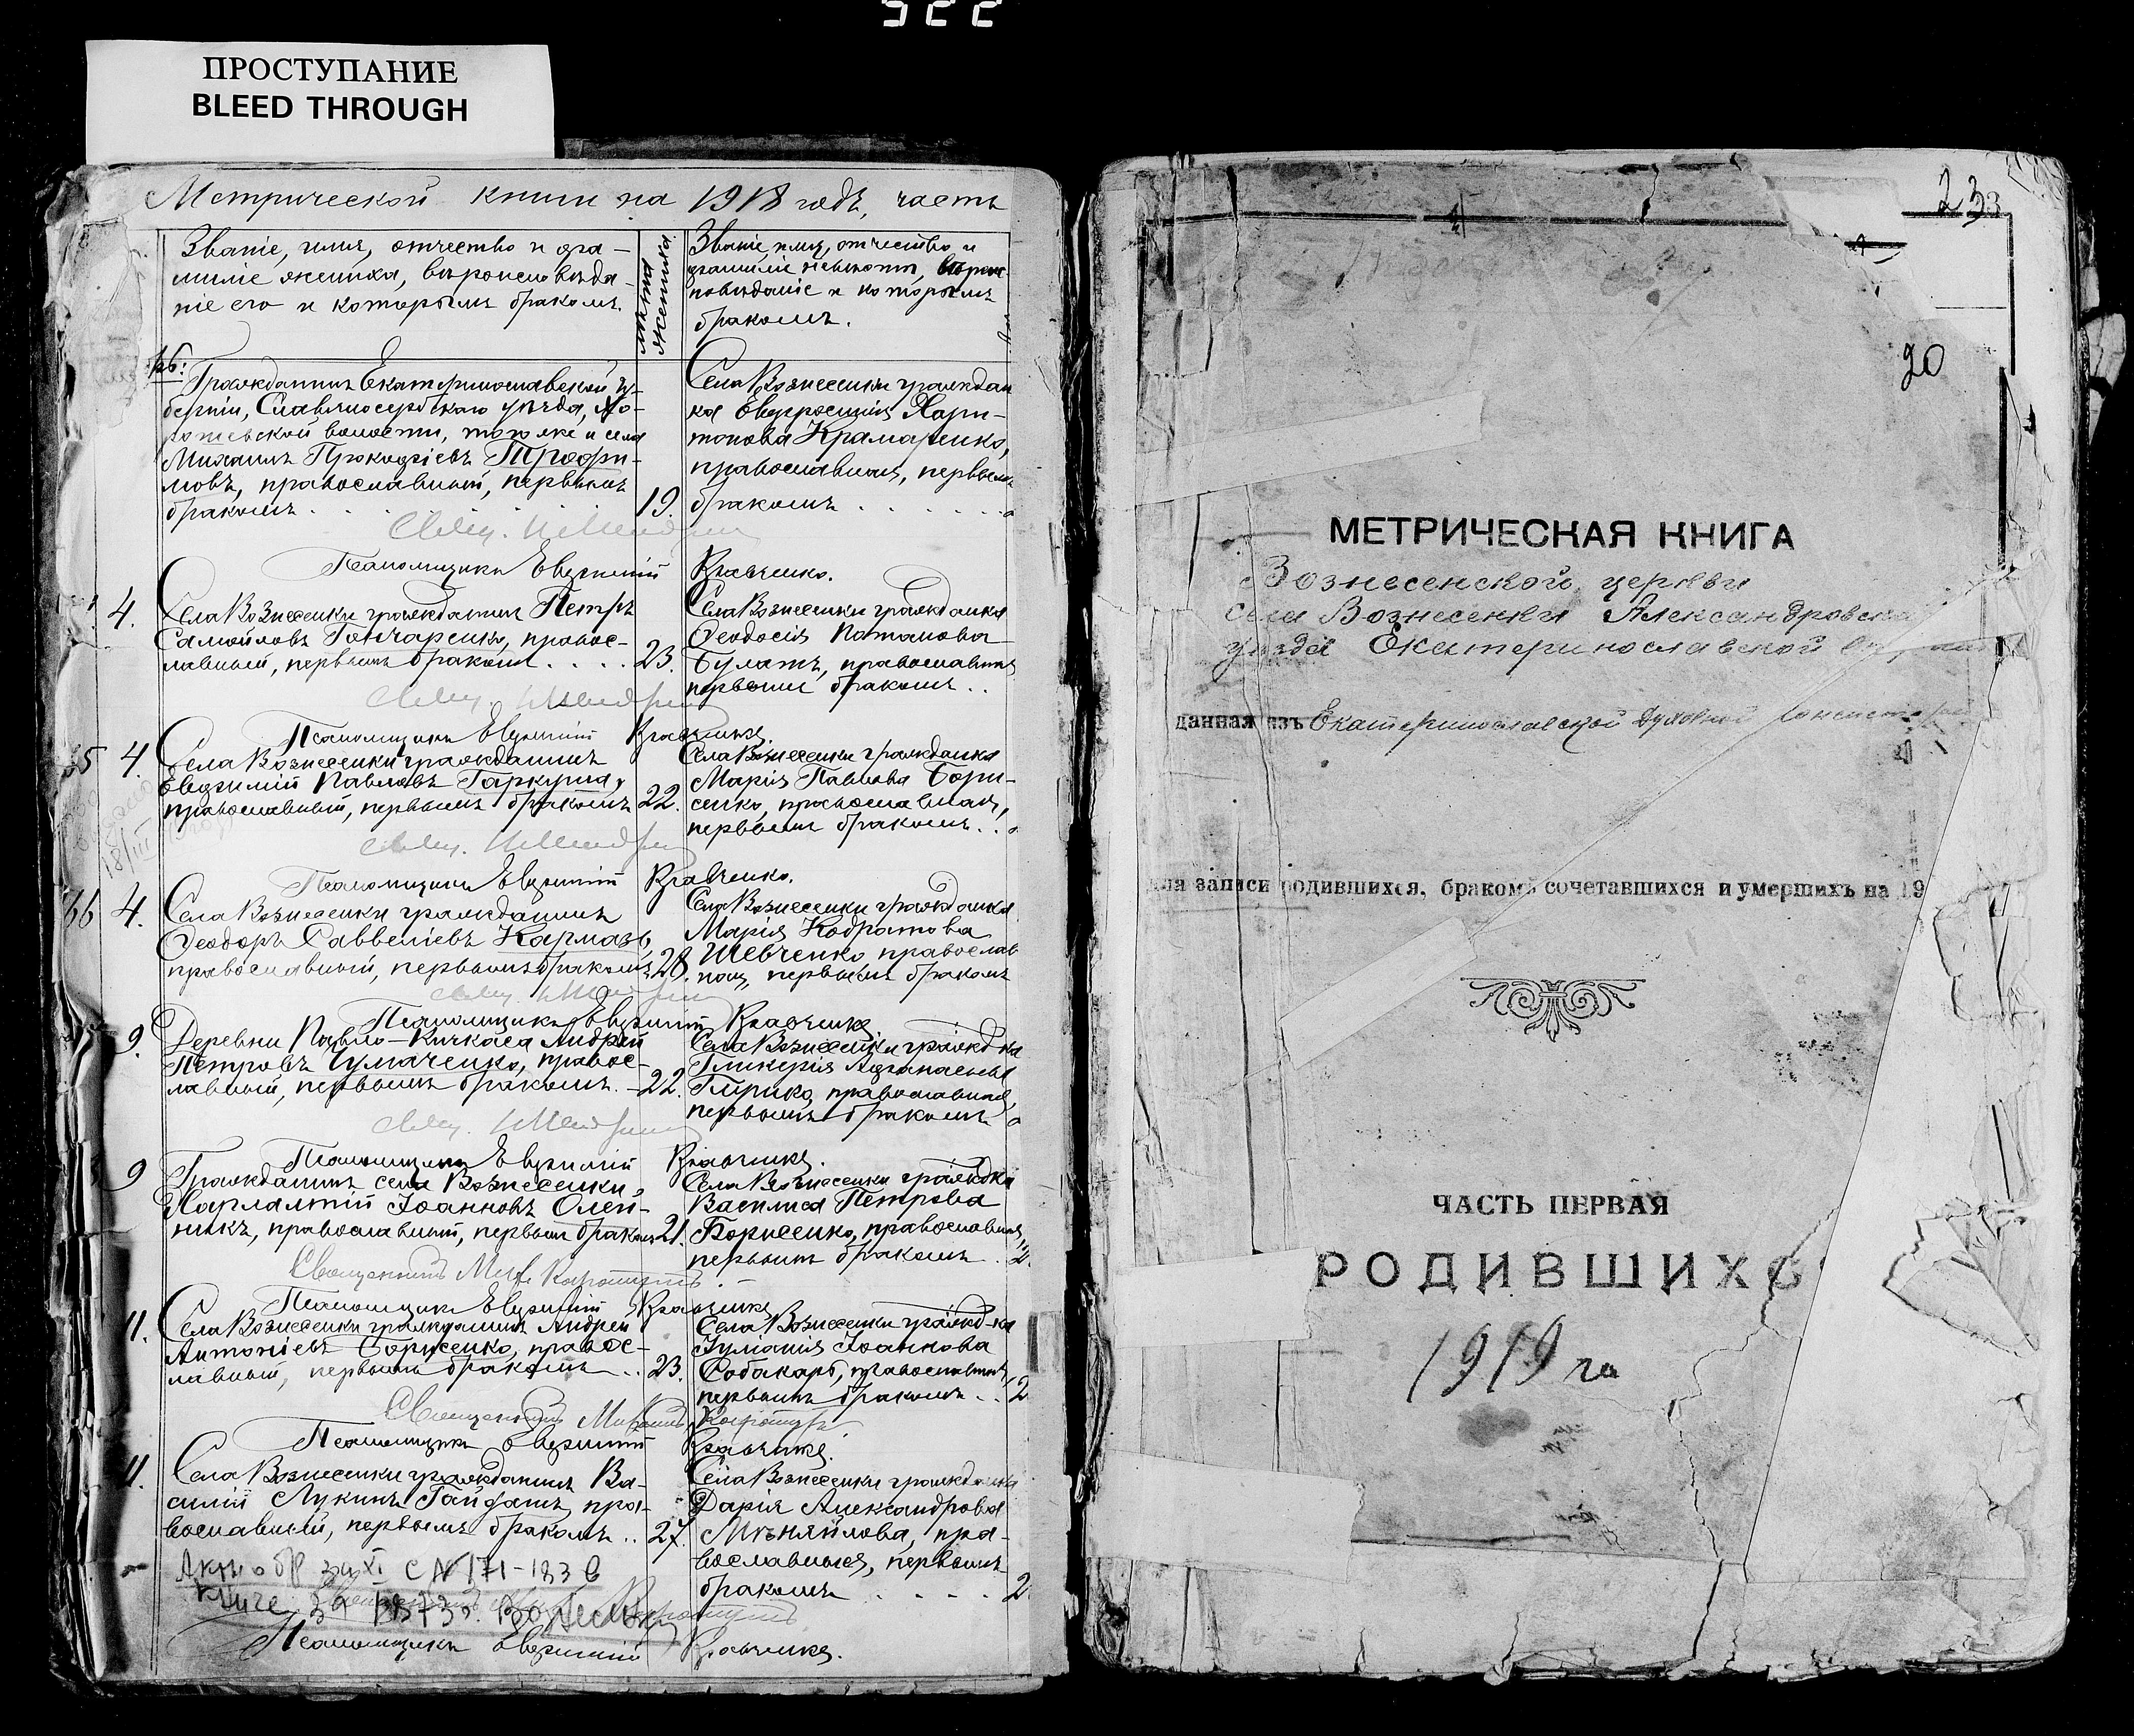 522
ПРОСТУПАНИЕ
BLEED THROUGH
Метрической книги на 1918 годъ, часть
Званіе, имя, отчество и фа-
миліе жениха, вѣроисповѣда-
ніе его и которымъ бракомъ.
Лѣта жениха
Званіе, имя, отчество и
фамиліе невѣсты, вѣроис-
повѣданіе и которымъ
бракомъ.
Гражданинъ Екатеринославской гу-
берніи, Славяносербскаго уѣзда, Хо-
рошевской волости, того же и села
Михаилъ Прокофіевъ Трофи-
мовъ, православный, первымъ
бракомъ
19.
Села Вознесенки граждан
ка Евфросинія Хари-
тонова Крамаренко,
православная, первымъ
бракомъ
Псаломщикъ Евфимій Кравченко.
4.
Села Вознесенки гражданинъ Петръ
Самойловъ Гончаренко, правос-
лавный, первымъ бракомъ
23.
Села Вознесенки гражданка
Ѳеодосія Потапова
Булатъ, православная
первымъ бракомъ
Псаломщикъ Евфимій Кравченко.
65 4.
Села Вознесенки гражданинъ
Евфимій Павловъ Гаркуша,
православный, первымъ бракомъ
22.
Села Вознесенки гражданка
Марія Павлова Бори-
сенко, православная,
первымъ бракомъ
18/III
Псаломщикъ Евфимій Кравченко.
66 4.
Села Вознесенки гражданинъ
Ѳеодоръ Савве­ліевъ Кармазь,
православный, первымъ бракомъ
28.
Села Вознесенки гражданка
Марія Кодратова
Шевченко, православ
ная, первымъ бракомъ
Псаломщикъ Евфимій Кравченко
9.
Деревни Павло-Кичкаса Андрей
Петровъ Чумаченко, правос-
лавный, первымъ бракомъ.
22.
Села Вознесенки гражд-ка
Гликерія Афанасьева
Гирико, православная,
первымъ бракомъ
Псаломщикъ Евфимій Кравченко.
9
Гражданинъ села Вознесенки,
Харлампій Іоанновъ Олей-
никъ, православный, первымъ бракомъ
21.
Села Вознесенки гражд-ка
Василиса Петрова
Борисенко, православная,
первымъ бракомъ
2.
Псаломщикъ Евфимій Кравченко
11.
Села Вознесенки гражданинъ Андрей
Антоніевъ Борисенко, правос-
лавный, первымъ бракомъ
23.
Села Вознесенки гражд-ка
Іуліанія Іоаннова
Собакарь, православная,
первымъ бракомъ
2
Священникъ Михаилъ
Псаломщикъ Евфимій Кравченко.
11.
Села Вознесенки гражданинъ Ва-
силій Лукинъ Гайдашъ, пра-
вославный, первымъ бракомъ
27.
Села Вознесенки гражданка
Дарія Александрова
Мѣняйлова, пра-
вославная, первымъ
бракомъ
2
Акты о бр за XI с № 171-183 в
книге
Псаломщикъ Евфимій Кравченко.
233
20
МЕТРИЧЕСКАЯ КНИГА
Вознесенской церкви
села Вознесенки Александровска
уѣзда Екатеринославской
данная изъ Екатеринославской Духовной
для записи родившихся, бракомъ сочетавшихся и умершихъ на 19
ЧАСТЬ ПЕРВАЯ
РОДИВШИХС
1919 га